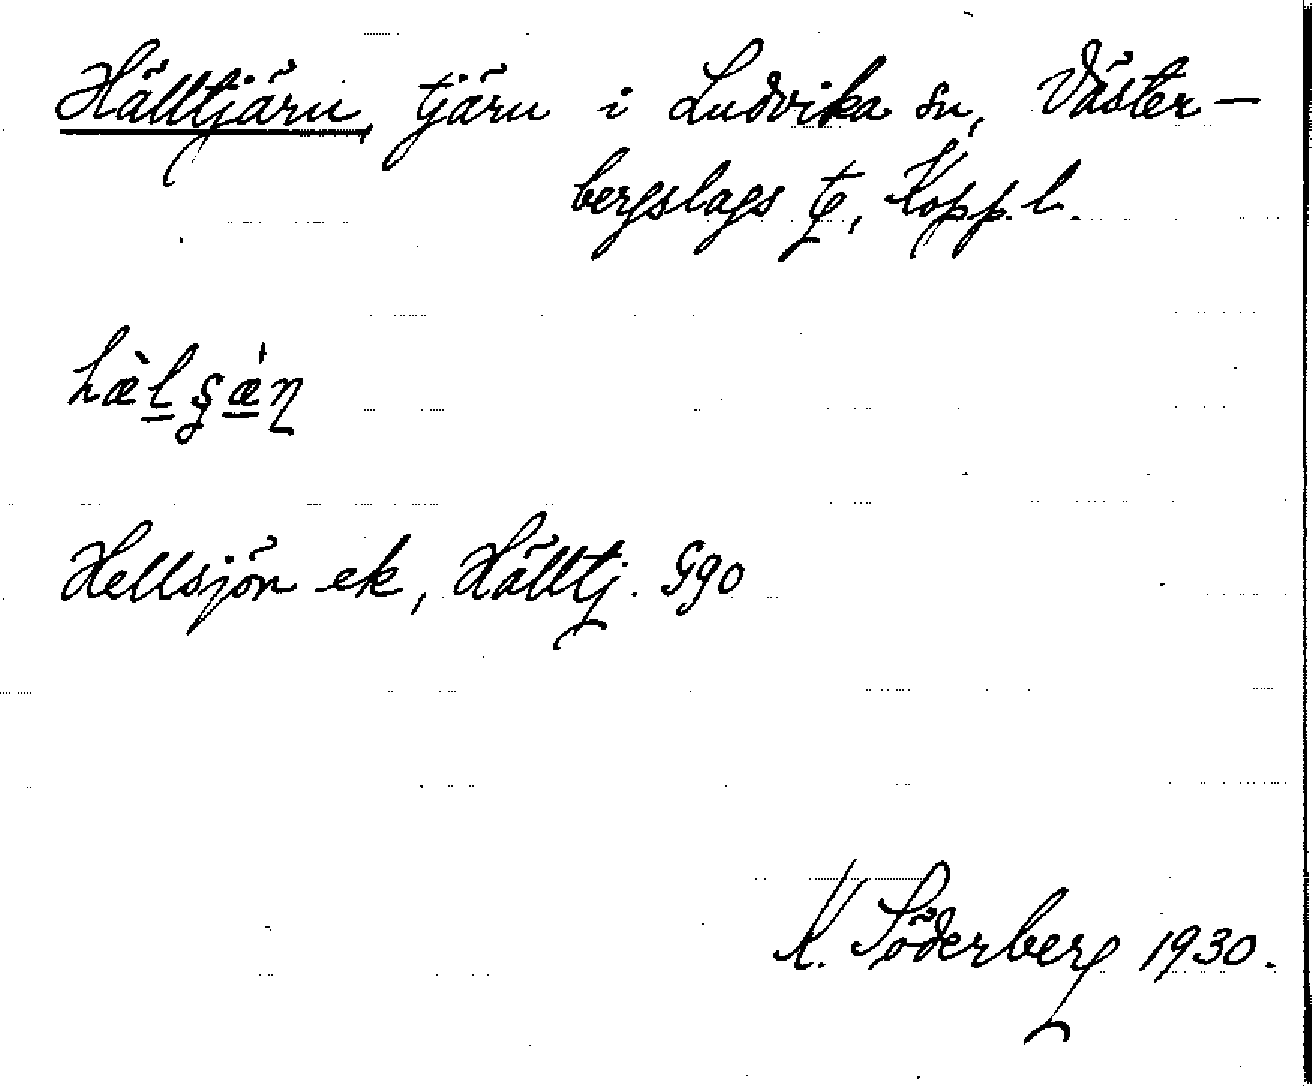 Hälltjärn, tjärn i Ludvika sn, Väster-
bergslags tg, Kopp. l.
hæ̀lʂæ̀ɳ
Hellsjön ek, Hälltj. Ggo
K. Söderberg 1930.